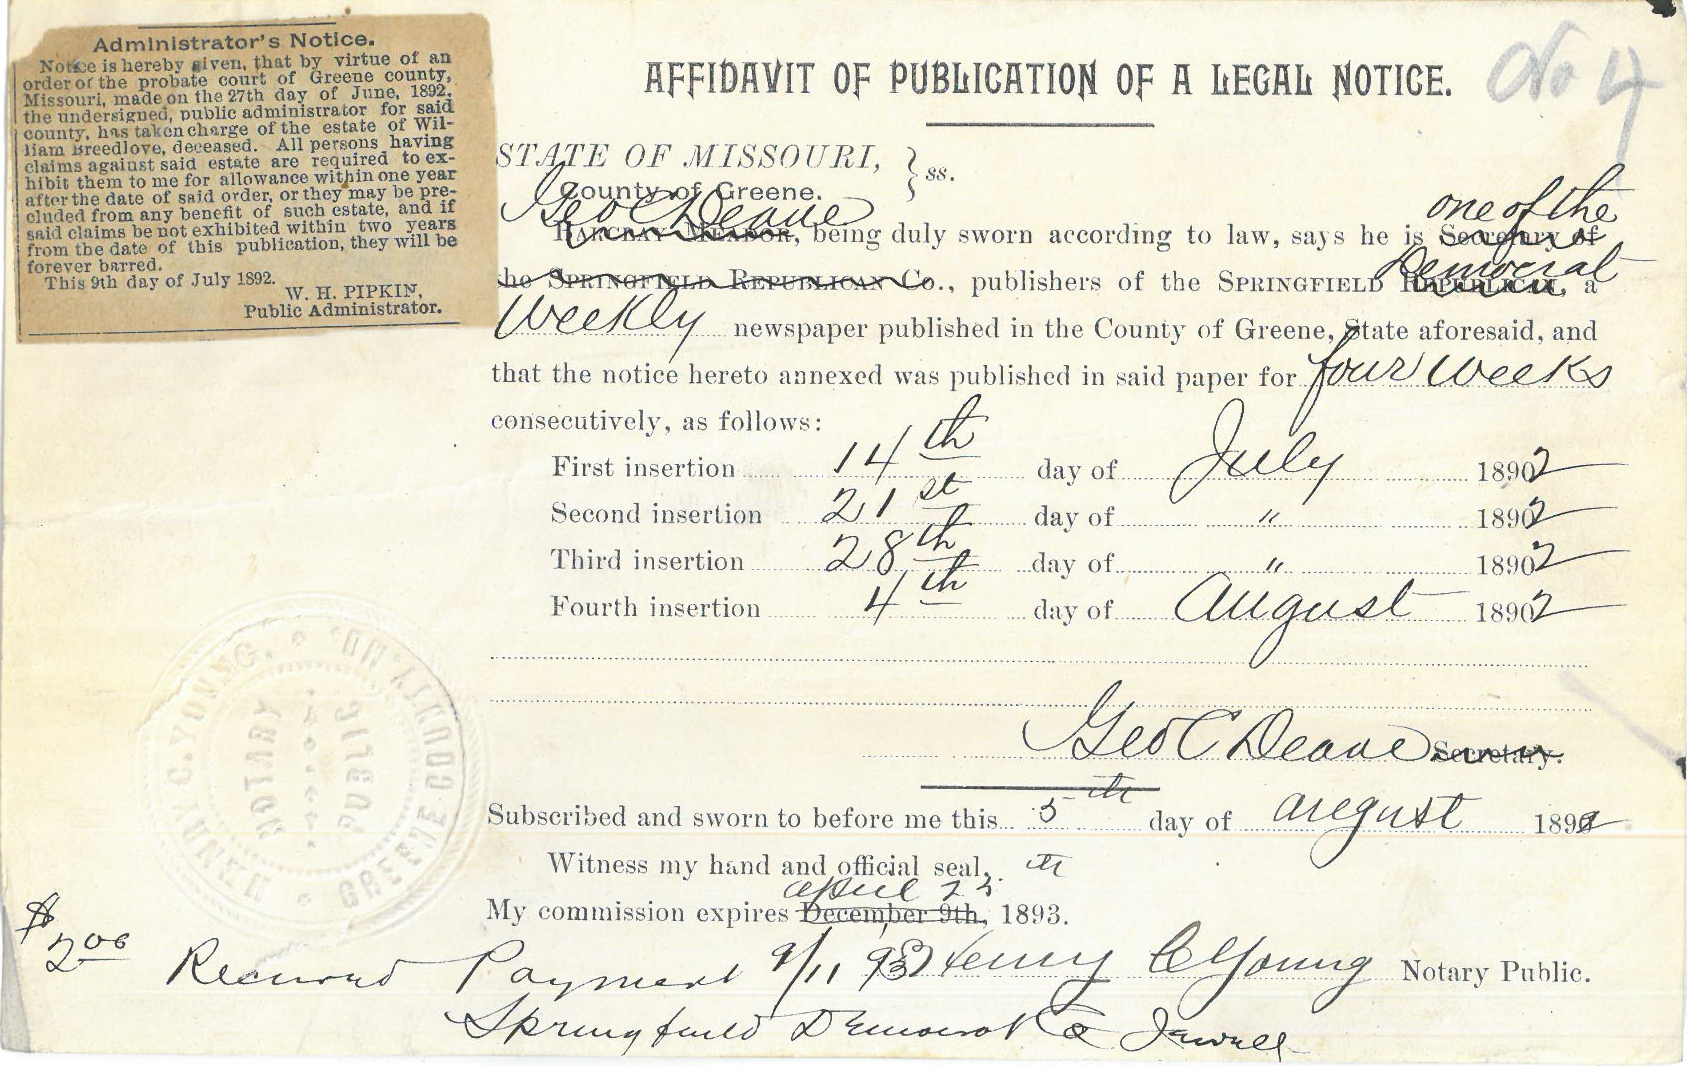 Administrator's Notice.
Notice is hereby given, that by virtue of an
order of the probate court of Greene county,
Missouri, made on the 27th day of June, 1892,
the undersigned, public administrator for said
county, has taken charge of the estate of Wil-
liam Breedlove, deceased. All persons having
claims against said estate are required to ex-
hibit them to me for allowance within one year
after the date of said order, or they may be pre-
cluded from any benefit of such estate, and if
said claims be not exhibited within two years
from the date of this publication, they will be
forever barred.
This 9th day of July 1892.
W. H. PIPKIN,
Public Administrator.
No 4
AFFIDAVIT OF PUBLICATION OF A LEGAL NOTICE.
STATE OF MISSOURI, } ss.
County of Greene.
Geo C Deane one of the
BARCLAY MEADOR, being duly sworn according to law, says he is Secretary of
Democrat
the SPRINGFIELD REPUBLICAN Co., publishers of the SPRINGFIELD REPUBLICAN, a
Weekly newspaper published in the County of Greene, State aforesaid, and
that the notice hereto annexed was published in said paper for four weeks
consecutively, as follows:
First insertion 14th day of July 1892
Second insertion 21st day of " 1892
Third insertion 28th day of " 1892
Fourth insertion 4th day of August 1892
Geo C Deane Secretary.
Subscribed and sworn to before me this 5th day of August 1892
Witness my hand and official seal.
April 25th
My commission expires December 9th, 1893.
Henry C Young Notary Public.
$2.00
Received Payment 9/11 93
Springfield Democrat Co
HENRY C. YOUNG.
NOTARY PUBLIC
GREENE COUNTY, MO.